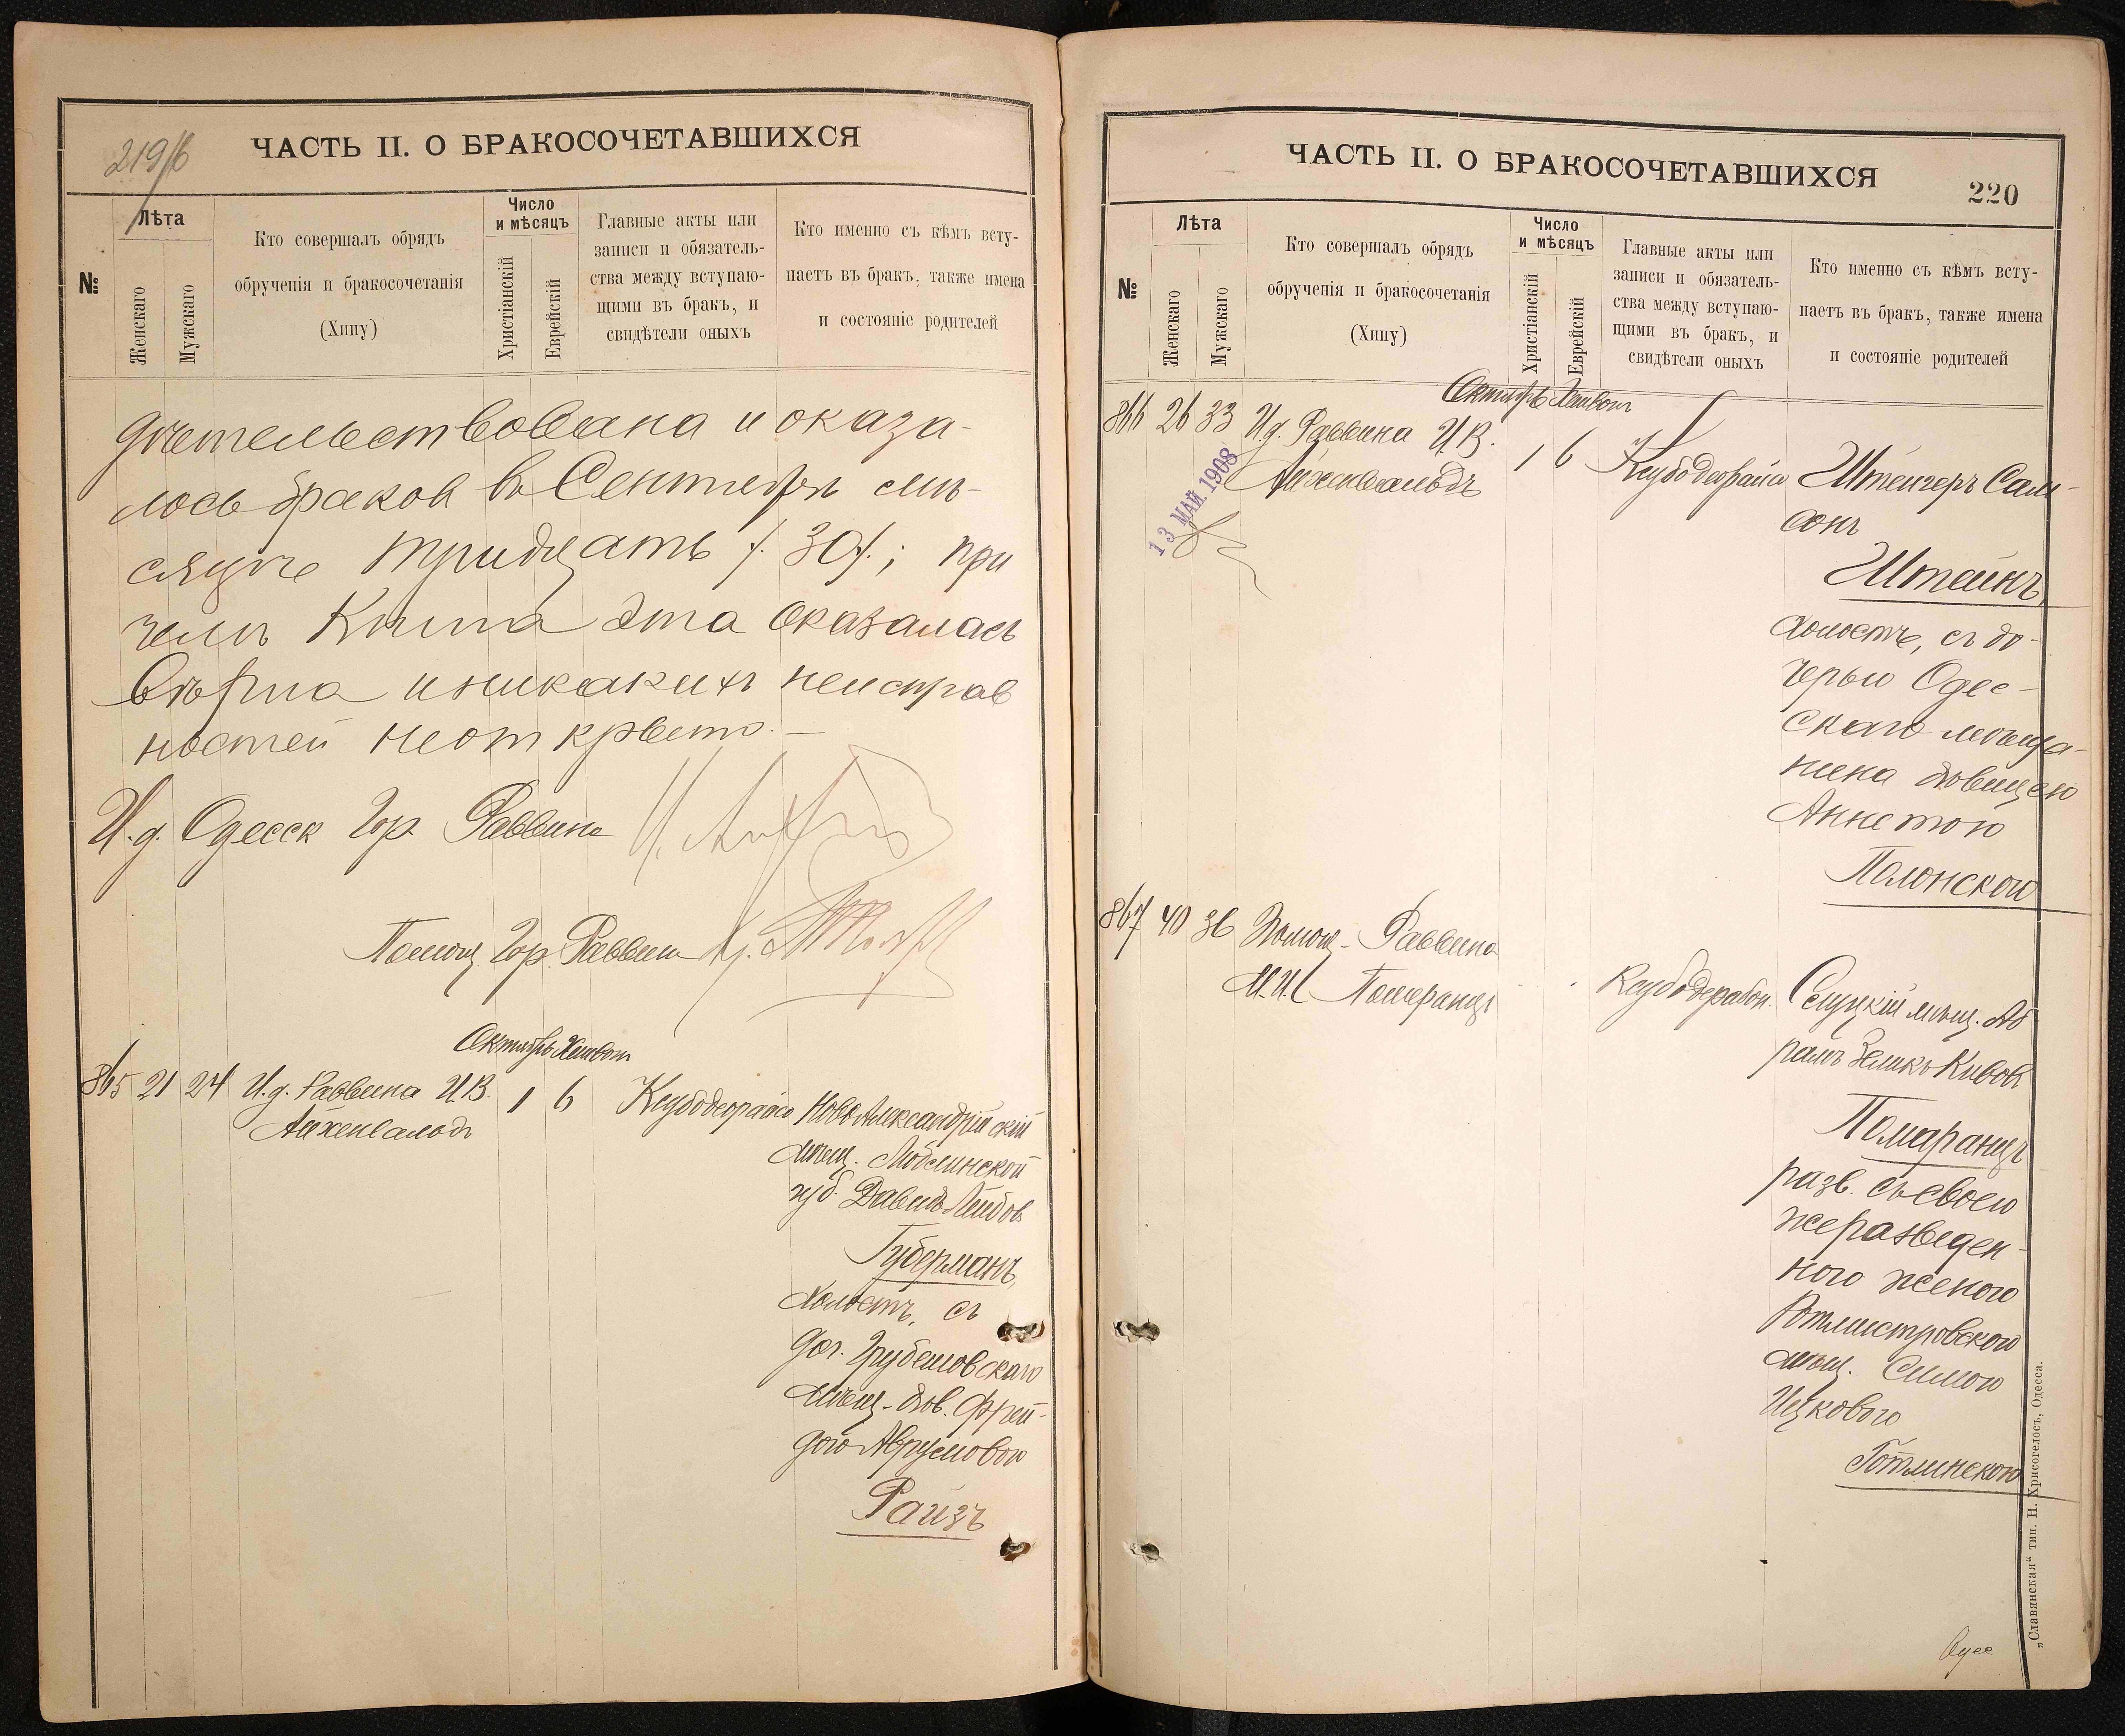 219/б
ЧАСТЬ II. О БРАКОСОЧЕТАВШИХСЯ
№
Лѣта
Женскаго
Мужскаго
Кто совершалъ обрядъ
обрученія и бракосочетанія
(Хипу)
Число
и мѣсяцъ
Христіанскій
Еврейскій
Главные акты или
записи и обязатель-
ства между вступаю-
щими въ бракъ, и
свидѣтели оныхъ
Кто именно съ кѣмъ всту-
паетъ въ бракъ, также имена
и состояніе родителей
дѣтельствована и оказа-
лось браковъ въ Сентябрѣ мѣ-
сяцѣ тридцать /.30/.; при
чемъ Книга эта оказалась
вѣрна и никакихъ неисправ
ностей не открыто.—
И.д. Одесск Гор Раввина
Помощ. Гор. Раввина
Октябрь Хешвон
865 21 24 И.д. Раввина И.В. 1 6
Айхенвальдъ
НовоАлександрійскій
мѣщ. Люблинской
губ. Давидъ Лейбов
Губерманъ,
холостъ, съ
доч. Грубешовскаго
мѣщ. дѣв. Фрей-
дою Аврумовою
Райзъ
ЧАСТЬ II. О БРАКОСОЧЕТАВШИХСЯ
220
№
Лѣта
Женскаго
Мужскаго
Кто совершалъ обрядъ
обрученія и бракосочетанія
(Хипу)
Число
и мѣсяцъ
Христіанскій
Еврейскій
Главные акты или
записи и обязатель-
ства между вступаю-
щими въ бракъ, и
свидѣтели оныхъ
Кто именно съ кѣмъ всту-
паетъ въ бракъ, также имена
и состояніе родителей
Октябрь Хешвон
866 26 33 И.д. Раввина И.В. 1 6
Айхенвальдъ
13 МАЙ. 1908
Штейнгеръ Сам-
сонъ
Штейнъ,
холостъ, съ до-
черью Одес-
скаго мѣща-
нина дѣвицею
Аннетою
Полонскою
867 40 36 Помощ. Раввина
М.И. Померанцъ
Слуцкій мѣщ. Аб
рамъ Зеликъ Кивов
Померанцъ
разв. съ своею
же разведен-
ною женою
Ротмистровскою
мѣщ. Симою
Ицковою
Готлинскою
„Славянская“ тип. Н. Хрисогелосъ, Одесса.